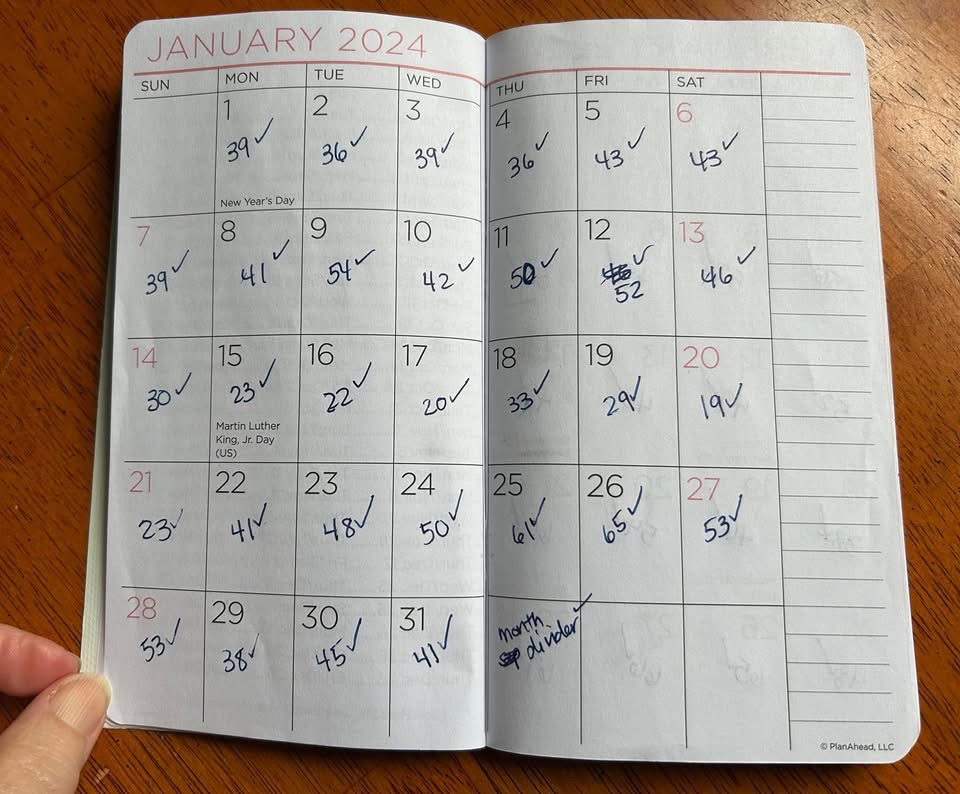 JANUARY 2024
SUN MON TUE WED THU FRI SAT
1 2 3 4 5 6
39 ✓ 36 ✓ 39 ✓ 36 ✓ 43 ✓ 43 ✓
New Year's Day
7 8 9 10 11 12 13
39 ✓ 41 ✓ 54 ✓ 42 ✓ 50 ✓ ✓ 46 ✓
52
14 15 16 17 18 19 20
30 ✓ 23 ✓ 22 ✓ 20 ✓ 33 ✓ 29 ✓ 19 ✓
Martin Luther
King, Jr. Day
(US)
21 22 23 24 25 26 27
23 ✓ 41 ✓ 48 ✓ 50 ✓ 61 ✓ 65 ✓ 53 ✓
28 29 30 31
53 ✓ 38 ✓ 45 ✓ 41 ✓
month ✓
divider
© PlanAhead, LLC